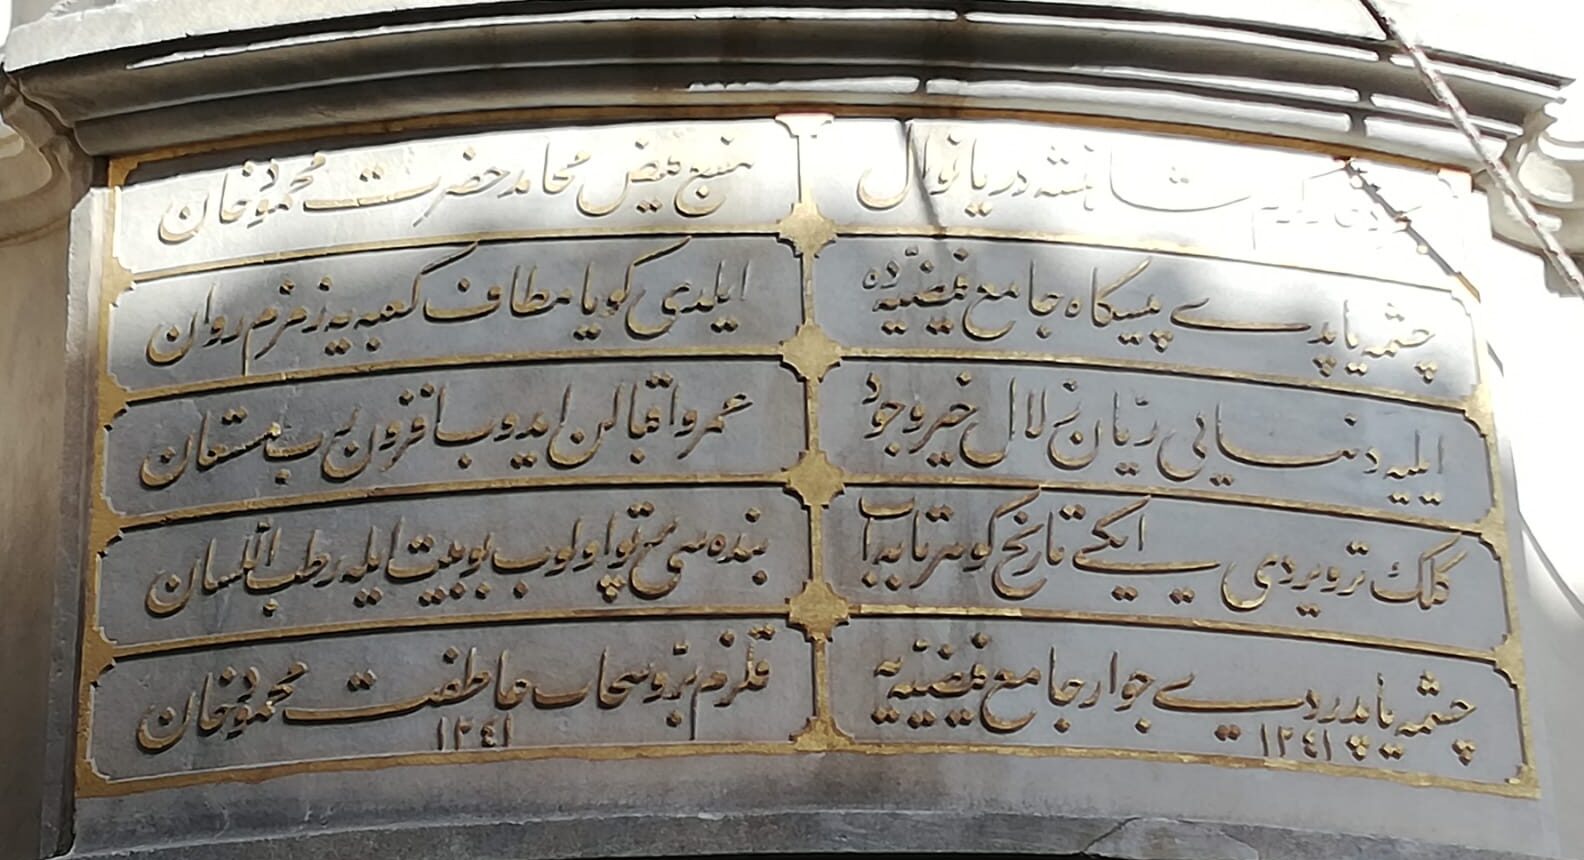 شاهنشه دریا نوال
منبع فیض محامد حضرت محمود خان
چشمه یاپدی پیشگاه جامع فیضیه ده
ایلدی کویا مطاف کعبه یه زمزم روان
ایلیه دنیایی ریان زلال خیر و جود
عمر و اقبالن ایدوب افزون رب مستعان
کلک تر ویردی ایکی تاریخ کوهرتابه آب
بنده سی پرتو اولوب بو بیت ایله رطب اللسان
چشمه یاپدردی جوار جامع فیضیه یه
١٢٤١
قلزم بر و سحاب عاطفت محمود خان
١٢٤١